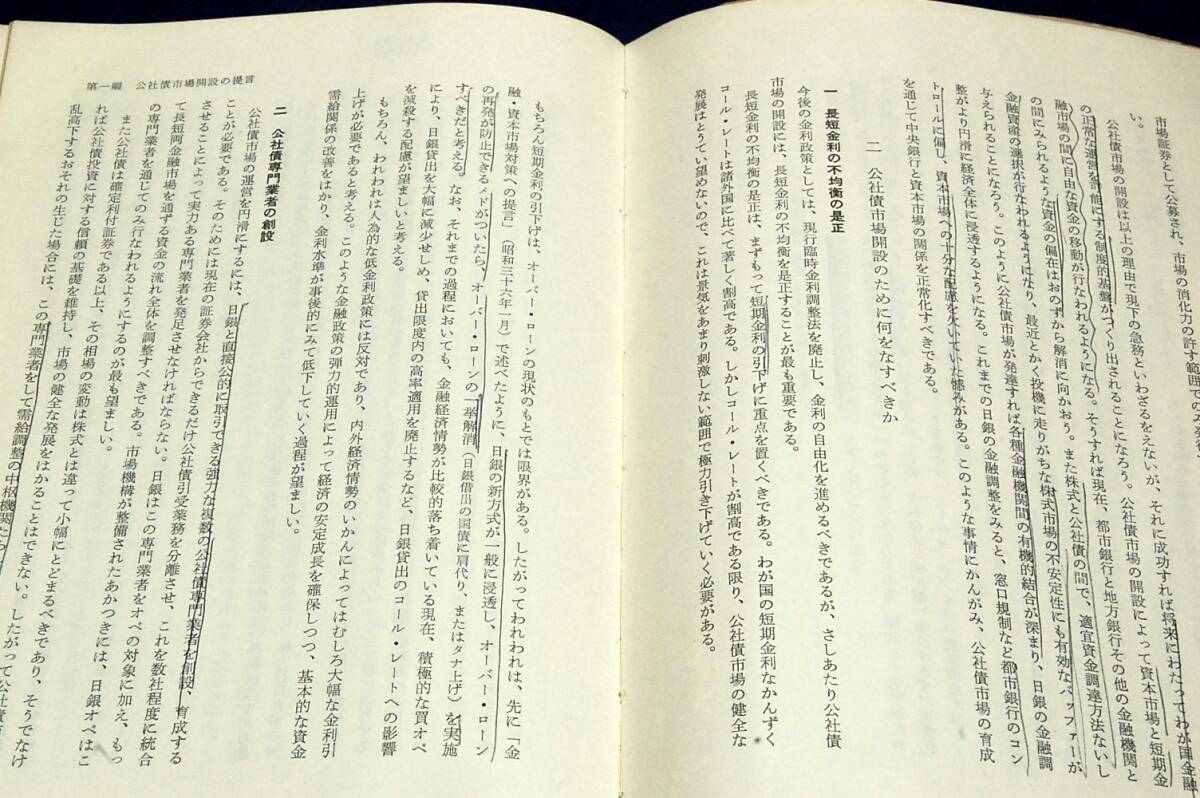 市場証券として公募され、市場の消化力の許す範囲での
い。
公社債市場の開設は以上の理由で現下の急務といわざるをえないが、それに成功すれば将来にわたってわが国金融
の正常な運営を可能にする制度的基盤がつくり出されることになろう。公社債市場の開設によって資本市場と短期金
融市場の間に自由な資金の移動が行なわれるようになる。そうすれば現在、都市銀行と地方銀行その他の金融機関と
の間にみられるような資金の偏在はおのずから解消に向かおう。また株式と公社債の間で、適宜資金調達方法ないし
金融資産の選択が行なわれるようになり、最近とかく投機に走りがちな株式市場の不安定性にも有効なバッファーが
与えられることになろう。このように公社債市場が発達すれば各種金融機関間の有機的結合が深まり、日銀の金融調
整がより円滑に経済全体に浸透するようになる。これまでの日銀の金融調整をみると、窓口規制など都市銀行のコン
トロールに偏し、資本市場への十分な配慮を欠いていた憾みがある。このような事情にかんがみ、公社債市場の育成
を通じて中央銀行と資本市場の関係を正常化すべきである。
二 公社債市場開設のために何をなすべきか
一 長短金利の不均衡の是正
今後の金利政策としては、現行臨時金利調整法を廃止し、金利の自由化を進めるべきであるが、さしあたり公社債
市場の開設には、長短金利の不均衡を是正することが最も重要である。
長短金利の不均衡の是正は、まずもって短期金利の引下げに重点を置くべきである。わが国の短期金利なかんずく
コール・レートは諸外国に比べて著しく割高である。しかしコール・レートが割高である限り、公社債市場の健全な
発展はとうてい望めないので、これは景気をあまり刺激しない範囲で極力引き下げていく必要がある。
もちろん短期金利の引下げは、オーバー・ローンの現状のもとでは限界がある。したがってわれわれは、先に「金
融・資本市場対策への提言」（昭和三十六年一月）で述べたように、日銀の新方式が一般に浸透し、オーバー・ローン
の再発が防止できるメドがついたら、オーバー・ローンの一挙解消（日銀借出の国債に肩代り、またはタナ上げ）を実施
すべきだと考える。なお、それまでの過程においても、金融経済情勢が比較的落ち着いている現在、積極的な買オペ
により、日銀貸出を大幅に減少せしめ、貸出限度内の高率適用を廃止するなど、日銀貸出のコール・レートへの影響
を減殺する配慮が望ましいと考える。
もちろん、われわれは人為的な低金利政策には反対であり、内外経済情勢のいかんによってはむしろ大幅な金利引
上げが必要であると考える。このような金融政策の弾力的運用によって経済の安定成長を確保しつつ、基本的な資金
需給関係の改善をはかり、金利水準が事後的にみて低下していく過程が望ましい。
二 公社債専門業者の創設
公社債市場の運営を円滑にするには、日銀と直接公的に取引できる強力な複数の公社債専門業者を創設、育成する
ことが必要である。そのためには現在の証券会社からできるだけ公社債引受業務を分離させ、これを数社程度に統合
させることによって実力ある専門業者を発足させなければならない。日銀はこの専門業者をオペの対象に加え、もっ
て長短両金融市場を通ずる資金の流れ全体を調整すべきである。市場機構が整備されたあかつきには、日銀オペはこ
の専門業者を通じてのみ行なわれるようにするのが最も望ましい。
また公社債は確定利付証券である以上、その相場の変動は株式とは違って小幅にとどまるべきであり、そうでなけ
れば公社債投資に対する信頼の基礎を維持し、市場の健全な発展をはかることはできない。したがって公社債
乱高下するおそれの生じた場合には、この専門業者をして需給調整の中枢機関たら
第一編 公社債市場開設の提言